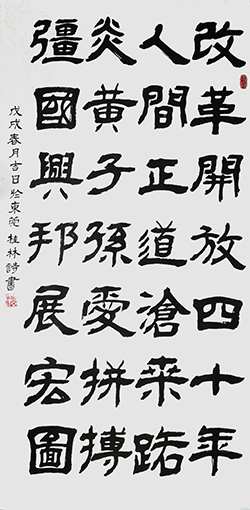 改革開放四十年
人間正道滄來踏
炎黃子孫愛拼搏
彊國興邦展宏圖
戊戌春月吉日於東莞桂林詩書